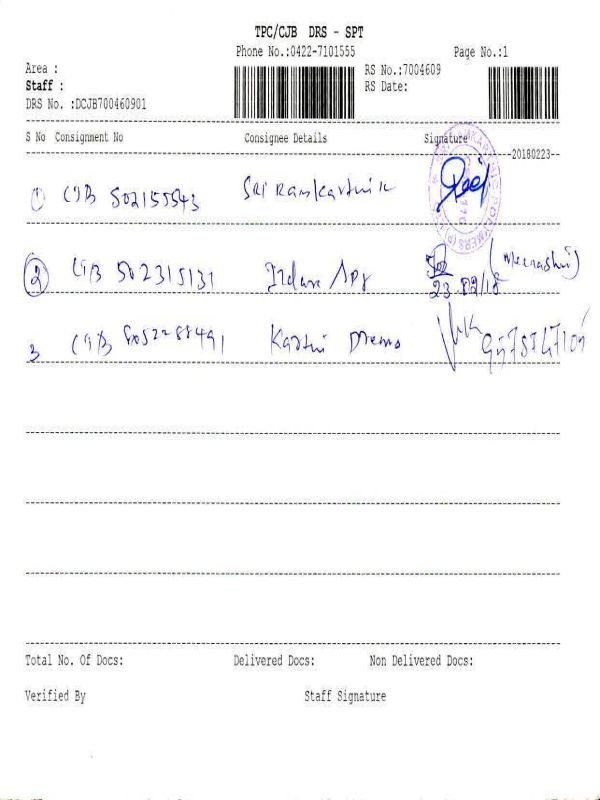 TPC/CJB DRS - SPT
Phone No.:0422-7101555 Page No.:1
Area : RS No.:7004609
Staff : RS Date:
DRS No. :DCJB700460901
S No Consignment No Consignee Details Signature
20180223
1 CJB 502155543 SRI Ramkarthik
2 CJB 502315131 (Meenashi)
23.02/18
3 CJB
Total No. Of Docs: Delivered Docs: Non Delivered Docs:
Verified By Staff Signature